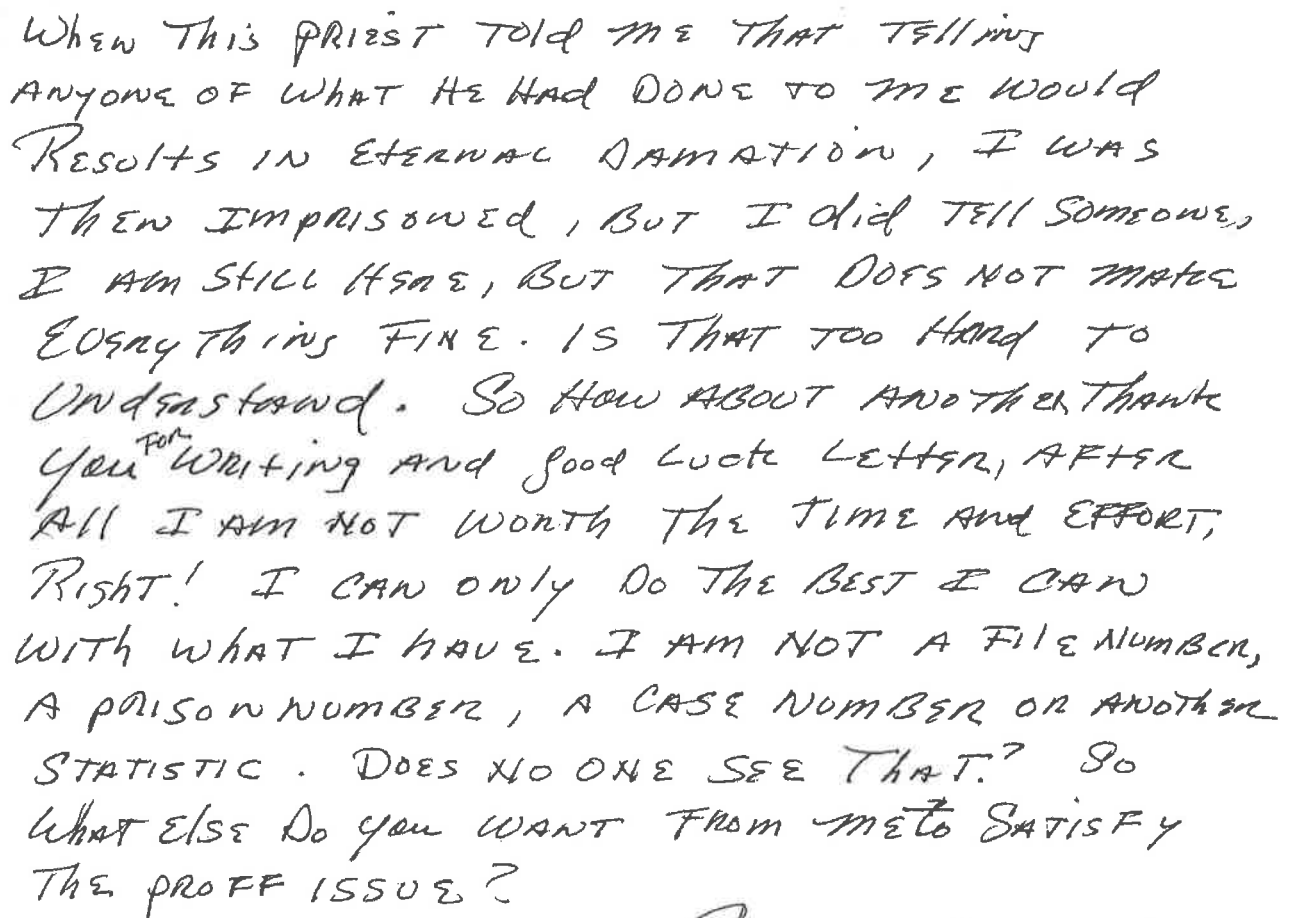 When This PRIEST Told ME THAT Telling
ANYONE OF WhAT HE HAd DONE TO ME Would
Results IN EtERNAL DAMATION, I WAS
Then IMPRISONEd, BUT I did TEll Someone,
I AM StiLL HERE, BUT THAT DOES NOT MAKE
Everything FINE. IS THAT TOO HARd TO
Understand. So How ABOUT ANOTHER Thank
you FOR Writing ANd good LUCK LETTER, AFTER
All I AM NOT WORTh The TIME And EFFORT,
Right! I CAN only Do The BEST I CAN
WITh WhAT I hAVE. I AM NOT A FilE NUMBER,
A PRISON NUMBER, A CASE NUMBER OR ANOThER
STATISTIC. DOES NO ONE SEE ThAT.? So
WhAT ElSE Do you WANT FROM ME to SATISFY
The PROFF ISSUE?